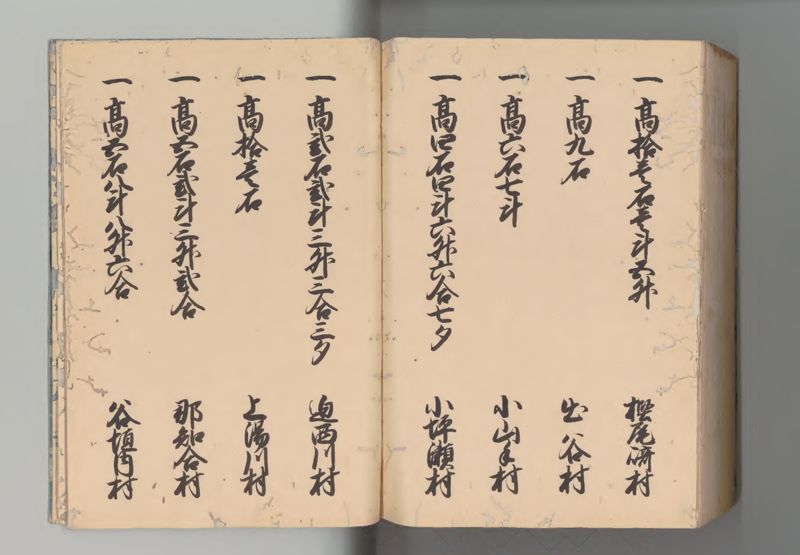 一 高拾壱石壱斗五升 樫尾研村
一 高九石 出谷村
一 高六石七斗 小山手村
一 高四石四斗六升六合七夕 小坪瀬村
一 高弐石弐斗三升三合三夕 迫西川村
一 高拾壱石 上湯川村
一 高五石弐斗三升弐合 那知合村
一 高五石八斗八升六合 谷垣内村